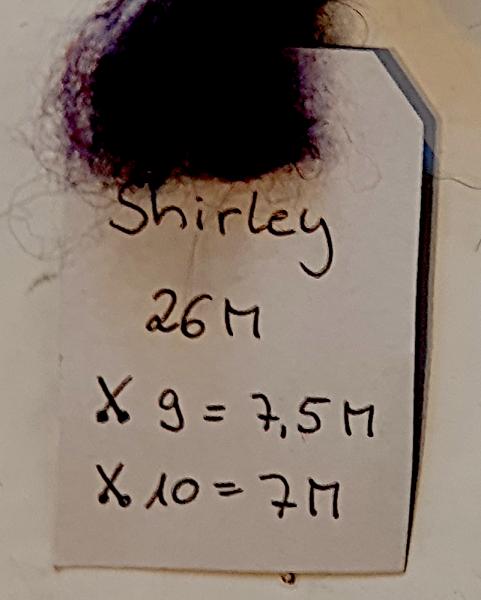 Shirley
26 M
X 9 = 7,5 M
X 10 = 7 M